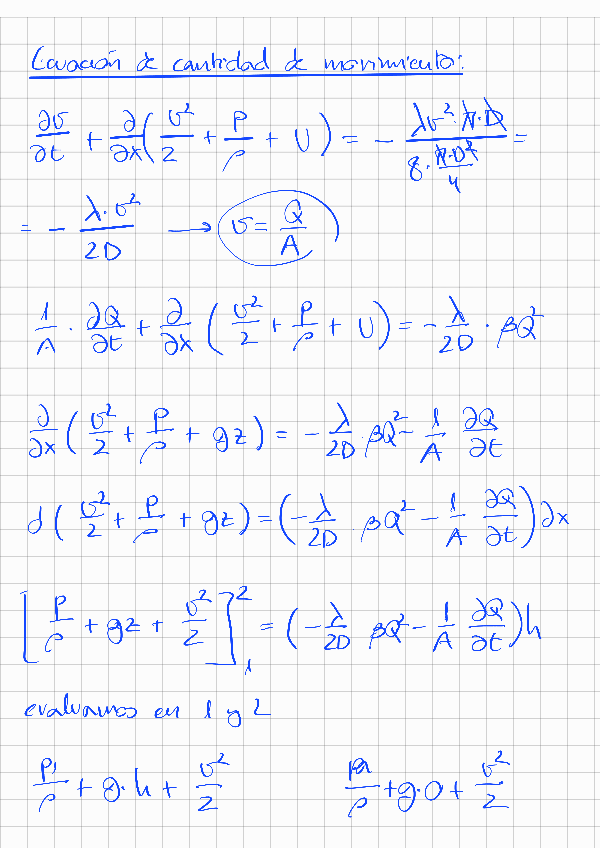 Ecuación de cantidad de movimiento:
∂v/∂t + ∂/∂x (v²/2 + P/ρ + U) = - λv²·π·D / (8·π·D²/4) =
= - λ·v²/2D → v = Q/A
1/A · ∂Q/∂t + ∂/∂x (v²/2 + P/ρ + U) = - λ/2D · βQ²
∂/∂x (v²/2 + P/ρ + gz) = - λ/2D βQ² - 1/A ∂Q/∂t
d(v²/2 + P/ρ + gz) = (- λ/2D βQ² - 1/A ∂Q/∂t) ∂x
[P/ρ + gz + v²/2]₁² = (- λ/2D βQ² - 1/A ∂Q/∂t) h
evaluamos en 1 y 2
P₁/ρ + g·h + v²/2 Pa/ρ + g·0 + v²/2